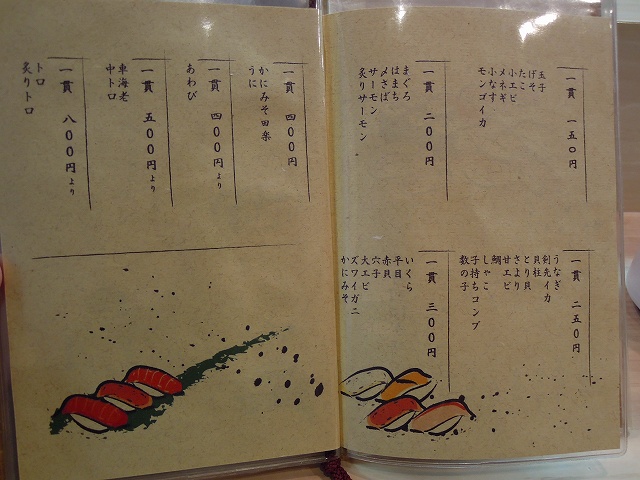 一貫 一五〇円
玉子
げそ
たこ
小エビ
メネギ
小なす
モンゴイカ
一貫 二〇〇円
まぐろ
はまち
〆さば
サーモン
炙りサーモン
一貫 二五〇円
うなぎ
剣先イカ
貝柱
とり貝
さより
甘エビ
鯛
しゃこ
子持ちコンブ
数の子
一貫 三〇〇円
いくら
平目
赤貝
穴子
大エビ
ズワイガニ
かにみそ
一貫 四〇〇円
かにみそ田楽
うに
一貫 四〇〇円より
あわび
一貫 五〇〇円より
車海老
中トロ
一貫 八〇〇円より
トロ
炙りトロ